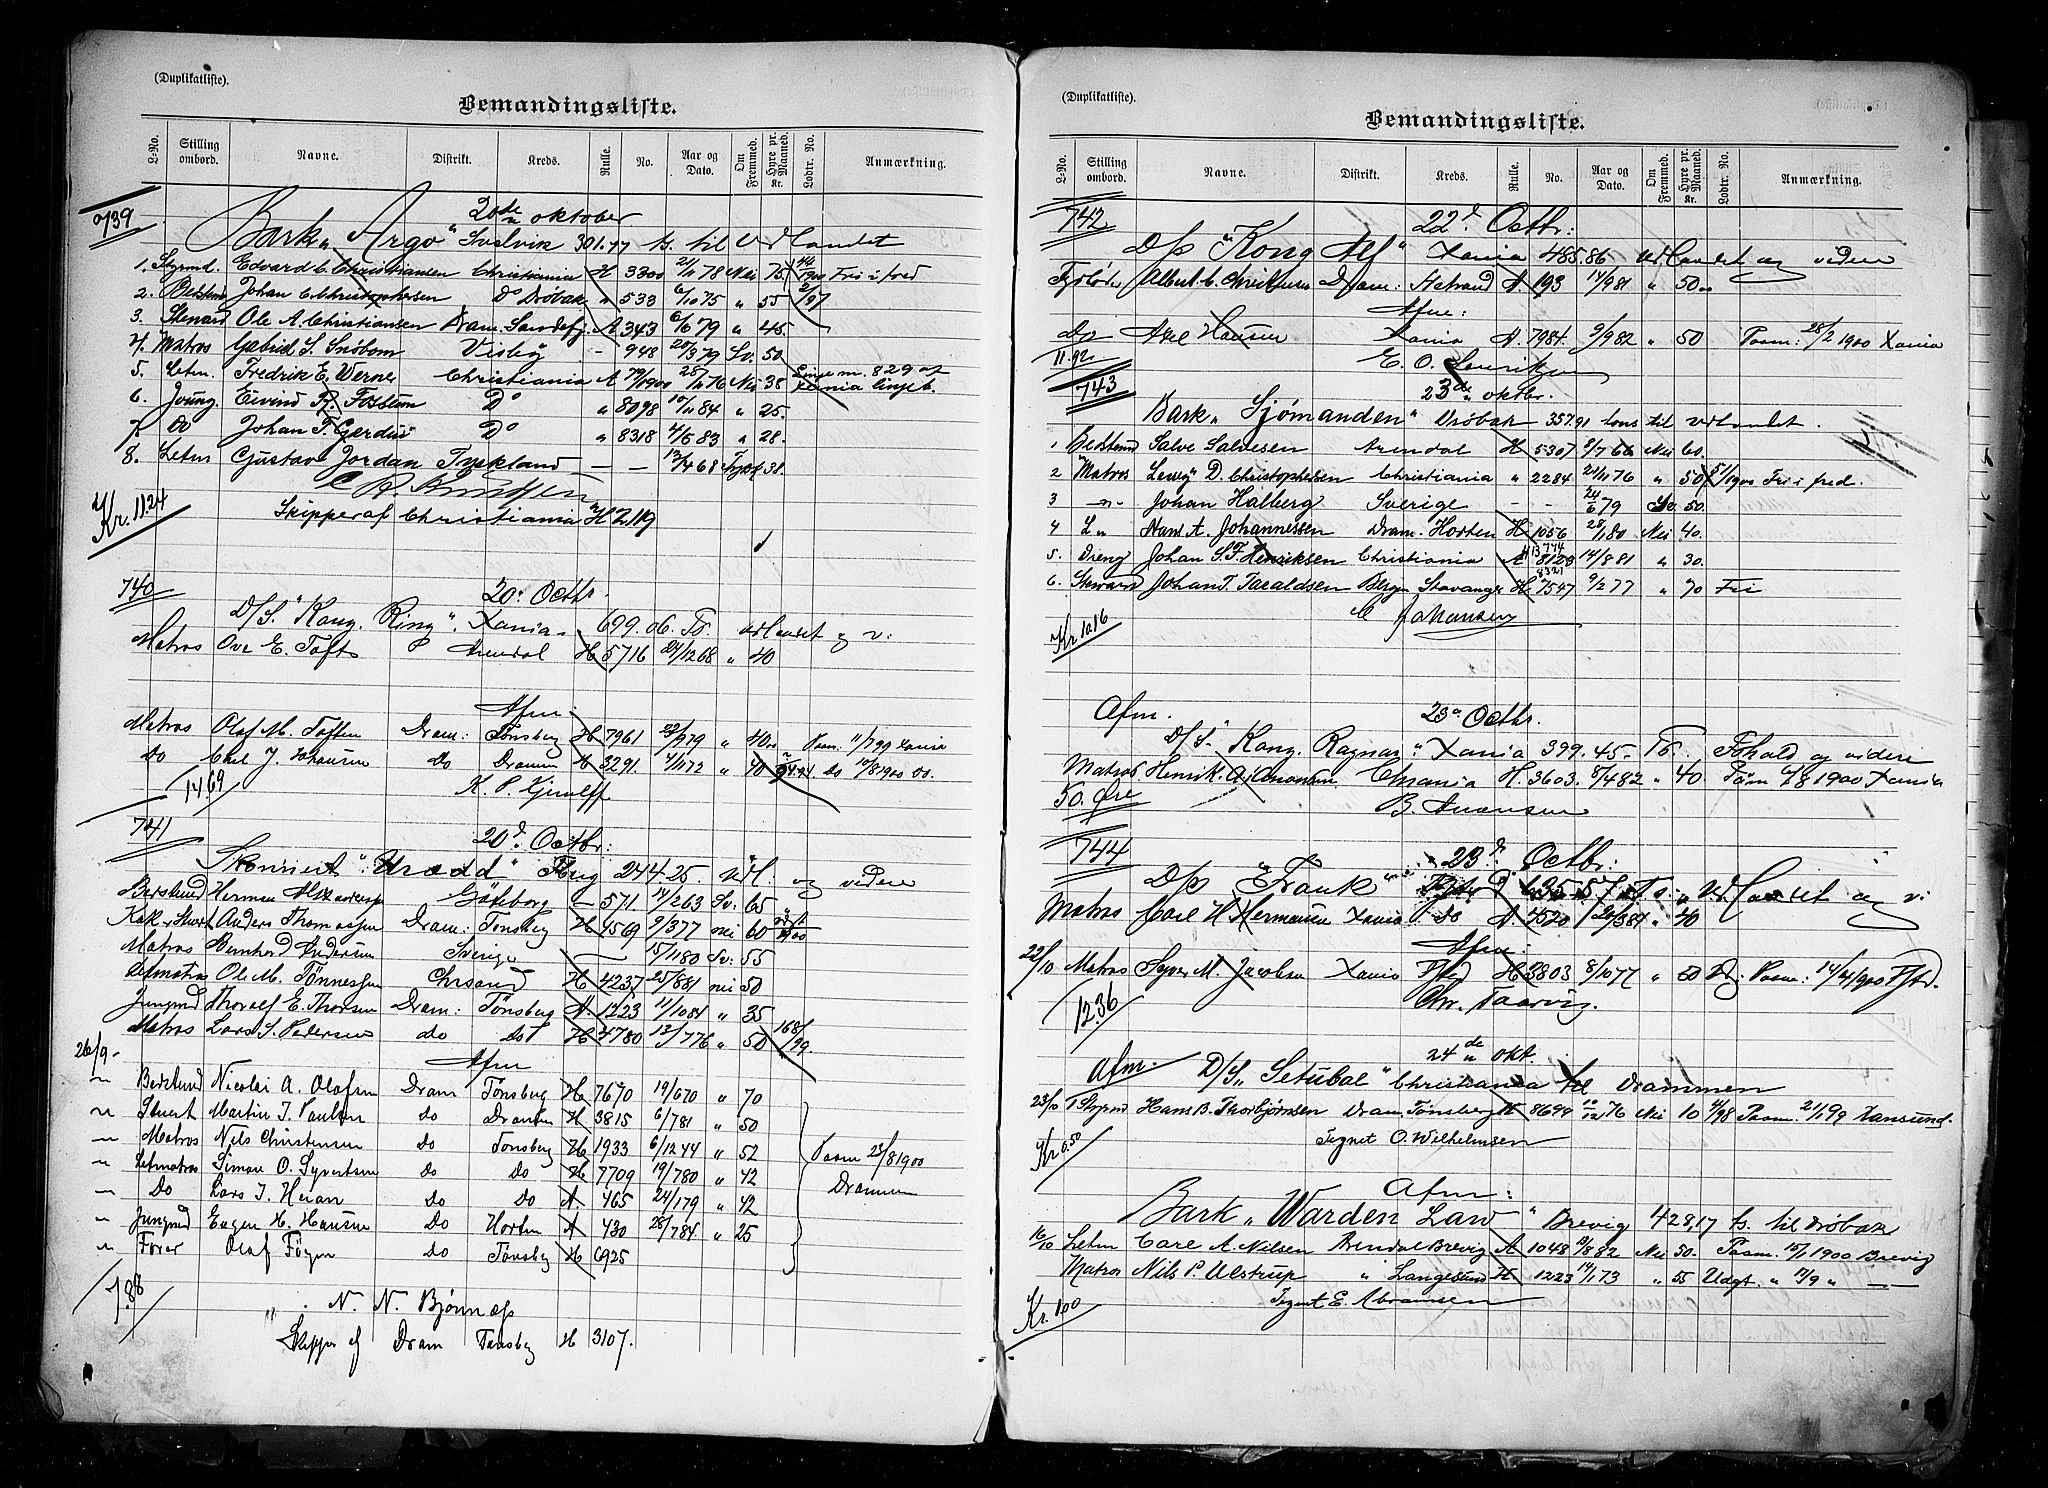 (Duplikatliste).
Bemandingsliste.
L-No. Stilling ombord. Navne. Distrikt. Kreds. Rulle. No. Aar og Dato. Om Fremmed. Hyre pr. Maaned. Kr. Lodtr. No. Anmærkning.
739
20de oktober
Bark „Argo" Svelvik 301.77 ts. til Udlandet
1. Styrmd. Edvard C. Christiansen Christiania H 3300 21/11 78 Nei 75 1900 Fri i fred
2. Bedstmd Johan C. Christophersen Do Drøbak " 533 6/10 75 " 55 2/97
3. Steward Ole A. Christiansen Dram. Sandefj. A 343 6/6 79 " 45
4. Matros Gabriel S. Snöbom Visby - 948 20/3 79 Sv. 50
5. Letm. Fredrik E. Werner Christiania A 79/1900 28/11 76 Nei 38
6. Joung. Eivind R. Fossum Do " 8098 10/11 84 " 25
7. do Johan F. Gerdin Do " 8318 4/5 83 " 28
8. Letm Gustav Jordan Tyskland — — 12/4 68 Tysk 38
Kr. 11.24
Skipper af Christiania H 2119
740
20. Octbr.
D/S. "Kong Ring". Xania. 699.06. Ts. Udlandet og v:
Matros Ove E. Toft Arendal H 5716 24/12 68 " 40
Afm.
Matros Olaf M. Toften Dram: Tönsberg H 7961 22/9 79 " 40 Paam 11/7 99 Xania
Do Carl J. Johansen do Dramm H 3291 4/1 72 " 40 do 10/8 1900 do.
14.69
741
20d Octbr:
Skonnert "Urædd" Tbrg 244.25. Udl: og videre
Göteborg - 571 14/2 63 Sv. 65
Kok & Stuert Anders Thomassen Dram: Tönsberg H 4569 9/3 77 nei 60
Matros Bernhard Andersen Sverige — 15/11 80 Sv: 55
Letmatros Ole M. Tönnessen Chrsand H 4237 25/8 81 nei 50
Jungmd Thoralf E. Thorsen Dram: Tönsberg A. 1223 11/10 84 " 35
Matros Lars S. Pedersen do do H 4780 13/7 76 " 50 168/99
26/9 -
Afm
" Bedstmd Nicolai A. Olafsen Dram Tönsberg H 7670 19/6 70 " 70
" Stuert Martin J. Paulsen do Drammen H 3815 6/7 81 " 50
" Matros Nils Christensen do Tonsberg H 1933 6/12 44 " 52 Paam 23/8 1900
" Letmatros Simon O. Syvertsen do Do H 7709 19/7 80 " 42 Drammen
" Do Lars J. Heian do Do A. 465 24/1 79 " 42
" Jungmd Eugen H. Hansen Do Horten A 430 28/7 84 " 25
" Fører Olaf Föyen do Tönsbg H 6925
7.88
N. N. Bjönnæs
Skipper af Dram Tönsberg H 3107.
(Duplikatliste).
Bemandingsliste.
L-No. Stilling ombord. Navne. Distrikt. Kreds. Rulle. No. Aar og Dato. Om Fremmed. Hyre pr. Maaned. Kr. Lodtr. No. Anmærkning.
742
22d Octbr:
D/S "Kong Alf" Xania 485.86 Udlandet og videre
Fyrbøder Albert C. Dram: A. 193 14/9 81 " 50
Afm:
Do Axel Hansen Xania A. 7984 9/9 82 " 50 Paam: 28/2 1900 Xania
11.92
743
23de oktbr.
Bark „Sjømanden" Drøbak 357.91 tons til Udlandet.
1 Bedstmd Salve Salvesen Arendal H 5307 8/7 66 Nei 60.
2 Matros D. Christophersen Christiania " 2284 21/11 76 " 50 1900 Fri i fred.
3 -"- Johan Halberg Sverige - - 24/6 79 Sv. 50.
4 L " Hans A. Johannessen Dram. Horten H 1056 28/1 80 Nei 40.
5. Dreng Johan S.F. Henriksen Christiania A 8128 14/8 81 " 30.
6. Steward Johan T. Taraldsen Bergn Stavanger H 7547 9/2 77 " 70 Fri
C. Johansen
Kr 10.16
Afm.
23d Octbr.
D/S. "Kong Ragnar" Xania 399.45. Ts. Fshald og videre
Matros Henrik. Chrania H. 3603. 8/4 82 " 40 Paam 4/8 1900 Xania
50. Øre
744
23d. Octbr:
D/S "Frank" 635.57 Ts: Udlandet og v:
Matros Carl H. Hermansen Xania do A. 4520 21/3 84 " 40
Afm:
22/10 Matros Syver M. Jacobsen Xania Ffstd H 3803 8/10 77 " 60 Paam: 14/4 1900 Ffstd.
12.36
Chr. Taarvig.
Afm.
24de okt.
D/S „Setubal" Christiania til Drammen
23/10 1 Styrmd Hans B. Thorbjørnsen Dram Tønsberg H 8694 10/12 76 Nei 10 4/98 Paam. 2/1 99 Xansund.
Kr 0.50
Tegnet O. Wilhelmsen
Afm:
Bark „Warden Law" Brevig 428,17 ts. til Drøbak
16/10 Letm Carl A. Nilsen Arendal Brevig A 1048 19/8 82 Nei 50. Paam. 15/1 1900 Brevig
Matros Nils P. Ulstrup " Langesund H 1223 14/1 73 " 55 Udgt. " 17/9 " —
Kr. 1.00
Tegnet E. Abramsen